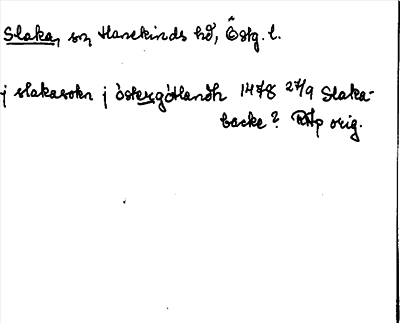 Slaka, sn, Hanekinds hd, Östg. l.
j slakasokn j östergötlandh 1478 27/9 Slaka-
backe? RAp orig.